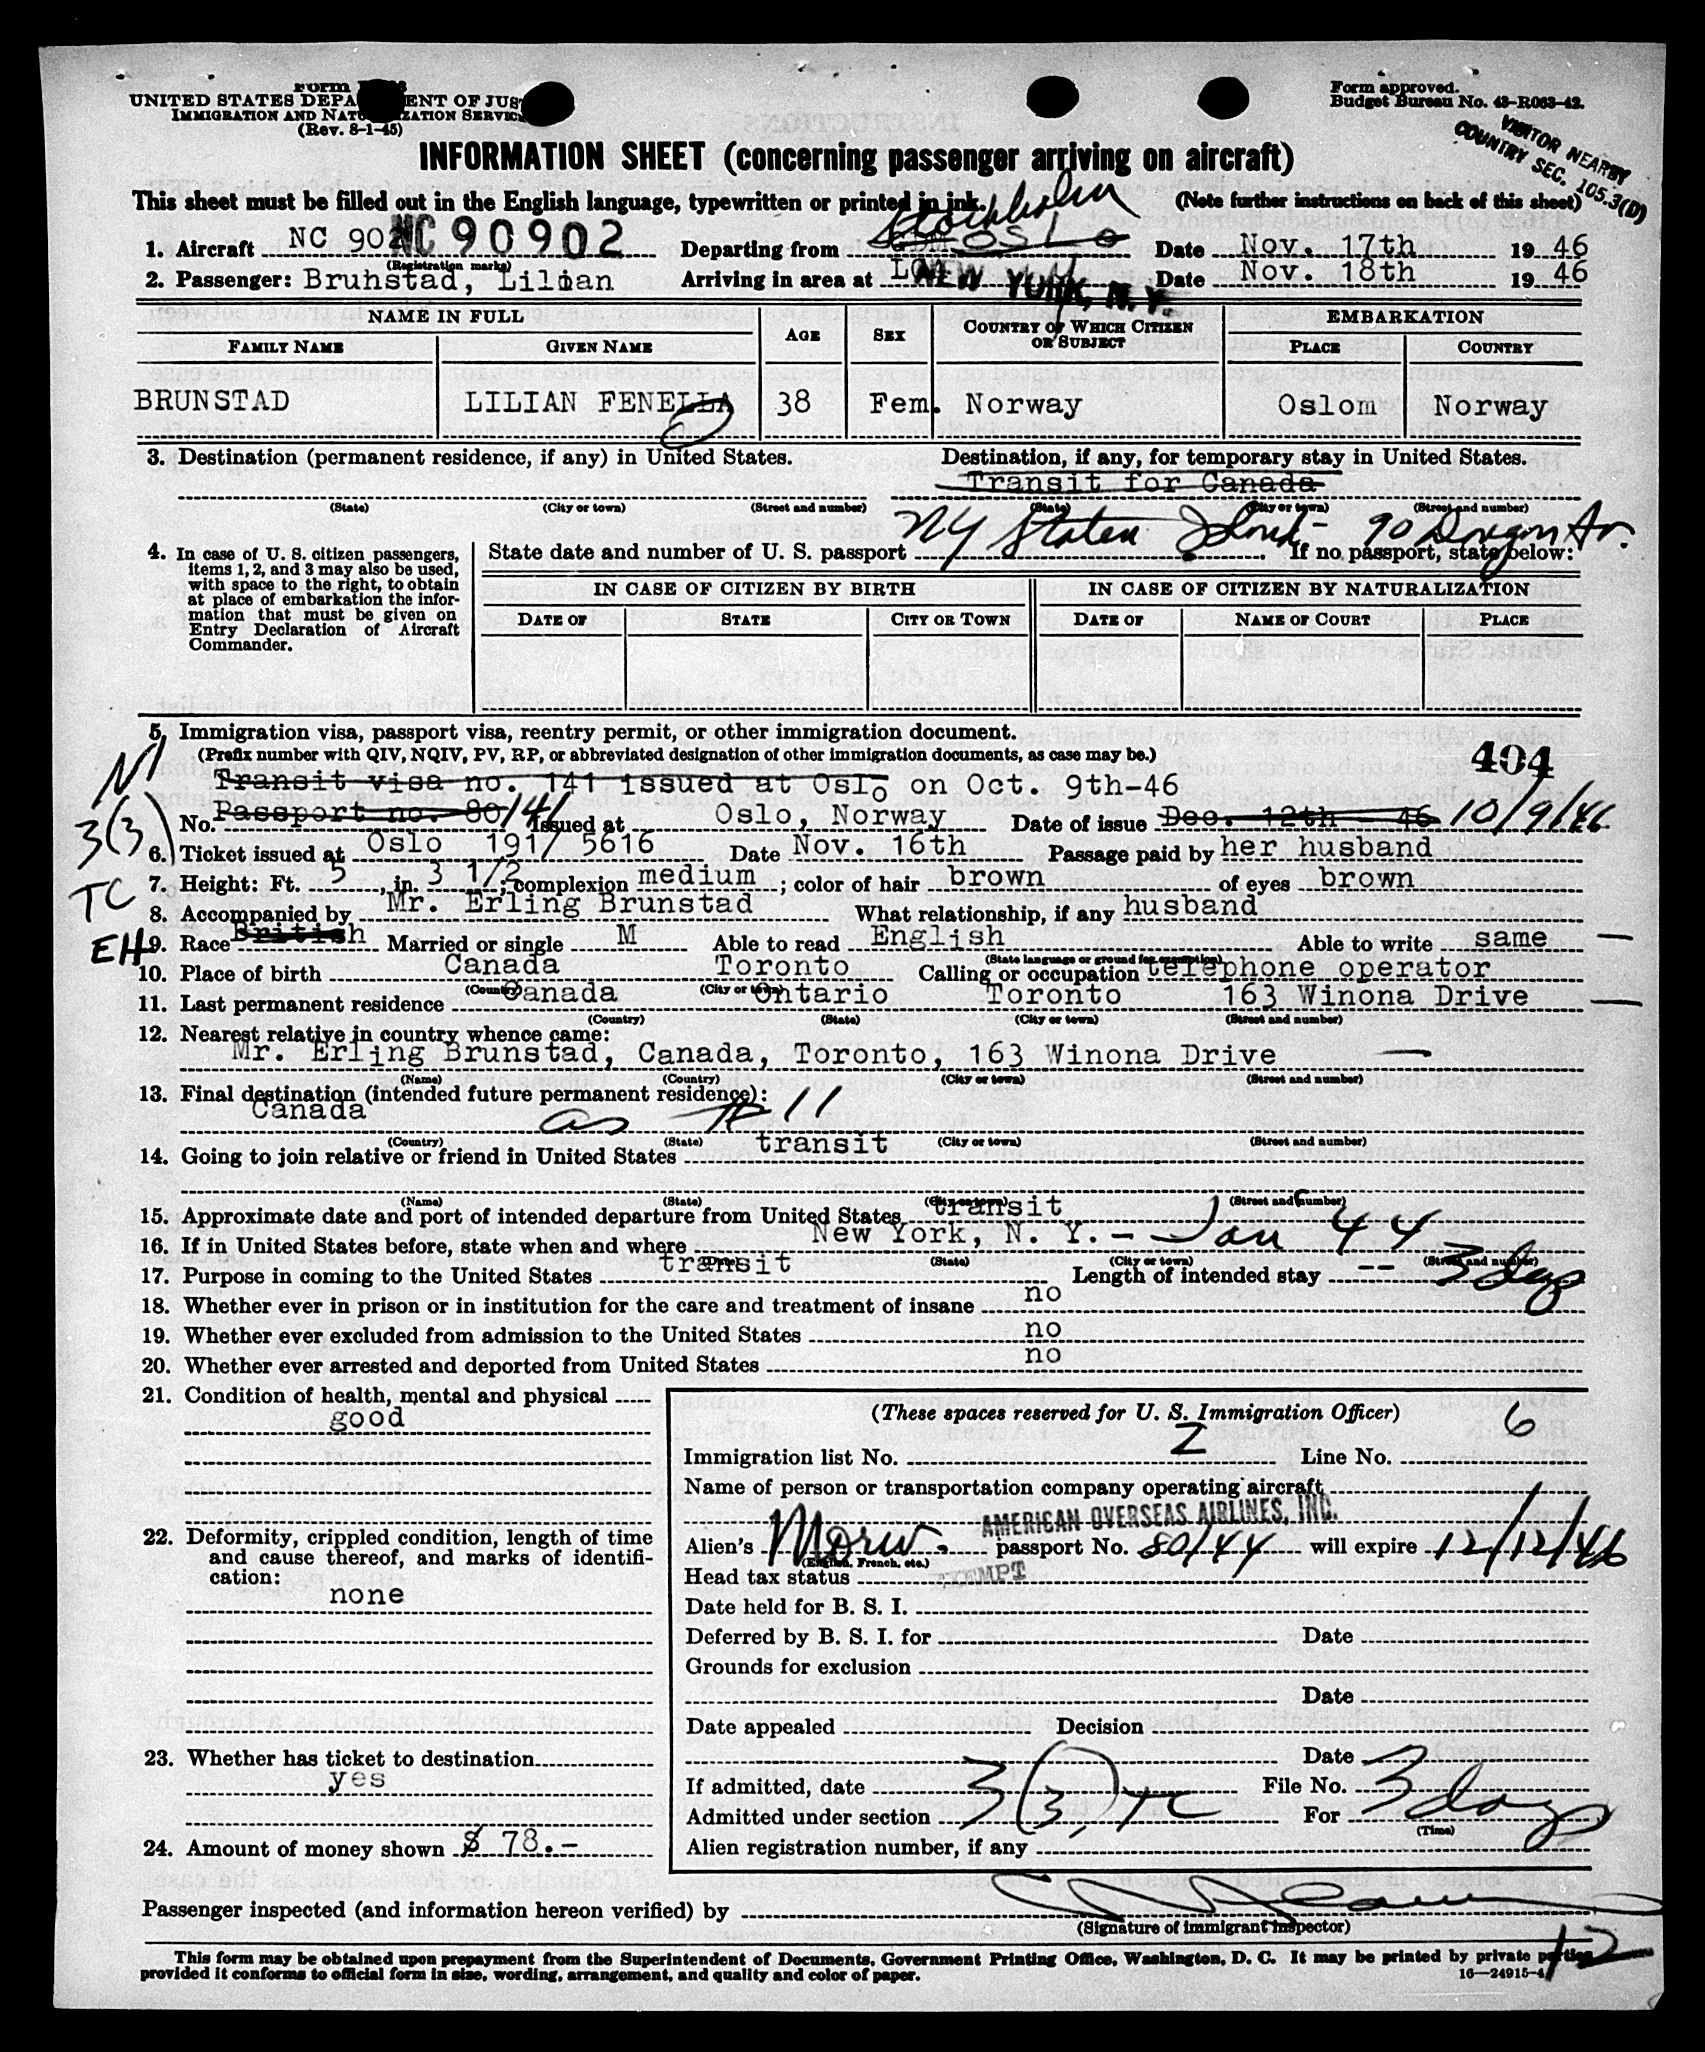 Form
UNITED STATES DEPA ENT OF JUS
IMMIGRATION AND NAT ZATION SERVIC
(Rev. 8-1-45)
Form approved.
Budget Bureau No. 43-R063-42.
VISITOR NEARBY
COUNTRY SEC. 105.3(D)
INFORMATION SHEET (concerning passenger arriving on aircraft)
This sheet must be filled out in the English language, typewritten or printed in ink. (Note further instructions on back of this sheet)
Stockholm
1. Aircraft NC 902 NC 90902 Departing from OSLO Date Nov. 17th 19 46
(Registration marks)
2. Passenger: Bruhstad, Lilian Arriving in area at NEW YORK, N.Y. Date Nov. 18th 19 46
NAME IN FULL AGE SEX COUNTRY OF WHICH CITIZEN OR SUBJECT EMBARKATION
FAMILY NAME GIVEN NAME PLACE COUNTRY
BRUNSTAD LILIAN FENELLA 38 Fem. Norway Oslom Norway
3. Destination (permanent residence, if any) in United States. Destination, if any, for temporary stay in United States.
Transit for Canada
(State) (City or town) (Street and number) (State) (City or town) (Street and number)
NY Staten Island - 90 Av.
4. In case of U. S. citizen passengers, items 1, 2, and 3 may also be used, with space to the right, to obtain at place of embarkation the information that must be given on Entry Declaration of Aircraft Commander.
State date and number of U. S. passport If no passport, state below:
IN CASE OF CITIZEN BY BIRTH IN CASE OF CITIZEN BY NATURALIZATION
DATE OF STATE CITY OR TOWN DATE OF NAME OF COURT PLACE
5. Immigration visa, passport visa, reentry permit, or other immigration document.
(Prefix number with QIV, NQIV, PV, RP, or abbreviated designation of other immigration documents, as case may be.)
404
NI
3(3)
TC
EH
Transit visa no. 141 issued at Oslo on Oct. 9th-46
Passport no. 80
No. 141 Issued at Oslo, Norway Date of issue Dec. 12th - 46 10/9/46
6. Ticket issued at Oslo 191/ 5616 Date Nov. 16th Passage paid by her husband
7. Height: Ft. 5, in. 3 1/2; complexion medium; color of hair brown of eyes brown
8. Accompanied by Mr. Erling Brunstad What relationship, if any husband
9. Race British Married or single M Able to read English Able to write same —
(State language or ground for exemption)
10. Place of birth Canada Toronto Calling or occupation telephone operator
(Country) (City or town)
11. Last permanent residence Canada Ontario Toronto 163 Winona Drive —
(Country) (State) (City or town) (Street and number)
12. Nearest relative in country whence came:
Mr. Erling Brunstad, Canada, Toronto, 163 Winona Drive —
(Name) (Country) (City or town) (Street and number)
13. Final destination (intended future permanent residence):
Canada as # 11
(Country) (State) (City or town) (Street and number)
14. Going to join relative or friend in United States transit
(Name) (State) (City or town) (Street and number)
15. Approximate date and port of intended departure from United States transit
16. If in United States before, state when and where New York, N. Y. - Jan 44
(Date) (State) (City or town) (Street and number)
17. Purpose in coming to the United States transit Length of intended stay -- 3 days
18. Whether ever in prison or in institution for the care and treatment of insane no
19. Whether ever excluded from admission to the United States no
20. Whether ever arrested and deported from United States no
21. Condition of health, mental and physical
good
22. Deformity, crippled condition, length of time and cause thereof, and marks of identification:
none
23. Whether has ticket to destination
yes
24. Amount of money shown $ 78.-
(These spaces reserved for U. S. Immigration Officer)
Immigration list No. 2 Line No. 6
Name of person or transportation company operating aircraft
AMERICAN OVERSEAS AIRLINES, INC.
Alien's Norw. passport No. 80/44 will expire 12/12/46
(English, French, etc.)
Head tax status EXEMPT
Date held for B. S. I.
Deferred by B. S. I. for Date
Grounds for exclusion
Date
Date appealed Decision
Date
If admitted, date File No.
Admitted under section 3(3) TC For 3 days
(Time)
Alien registration number, if any
Passenger inspected (and information hereon verified) by
(Signature of immigrant inspector)
This form may be obtained upon prepayment from the Superintendent of Documents, Government Printing Office, Washington, D. C. It may be printed by private parties
provided it conforms to official form in size, wording, arrangement, and quality and color of paper.
16—24915-4